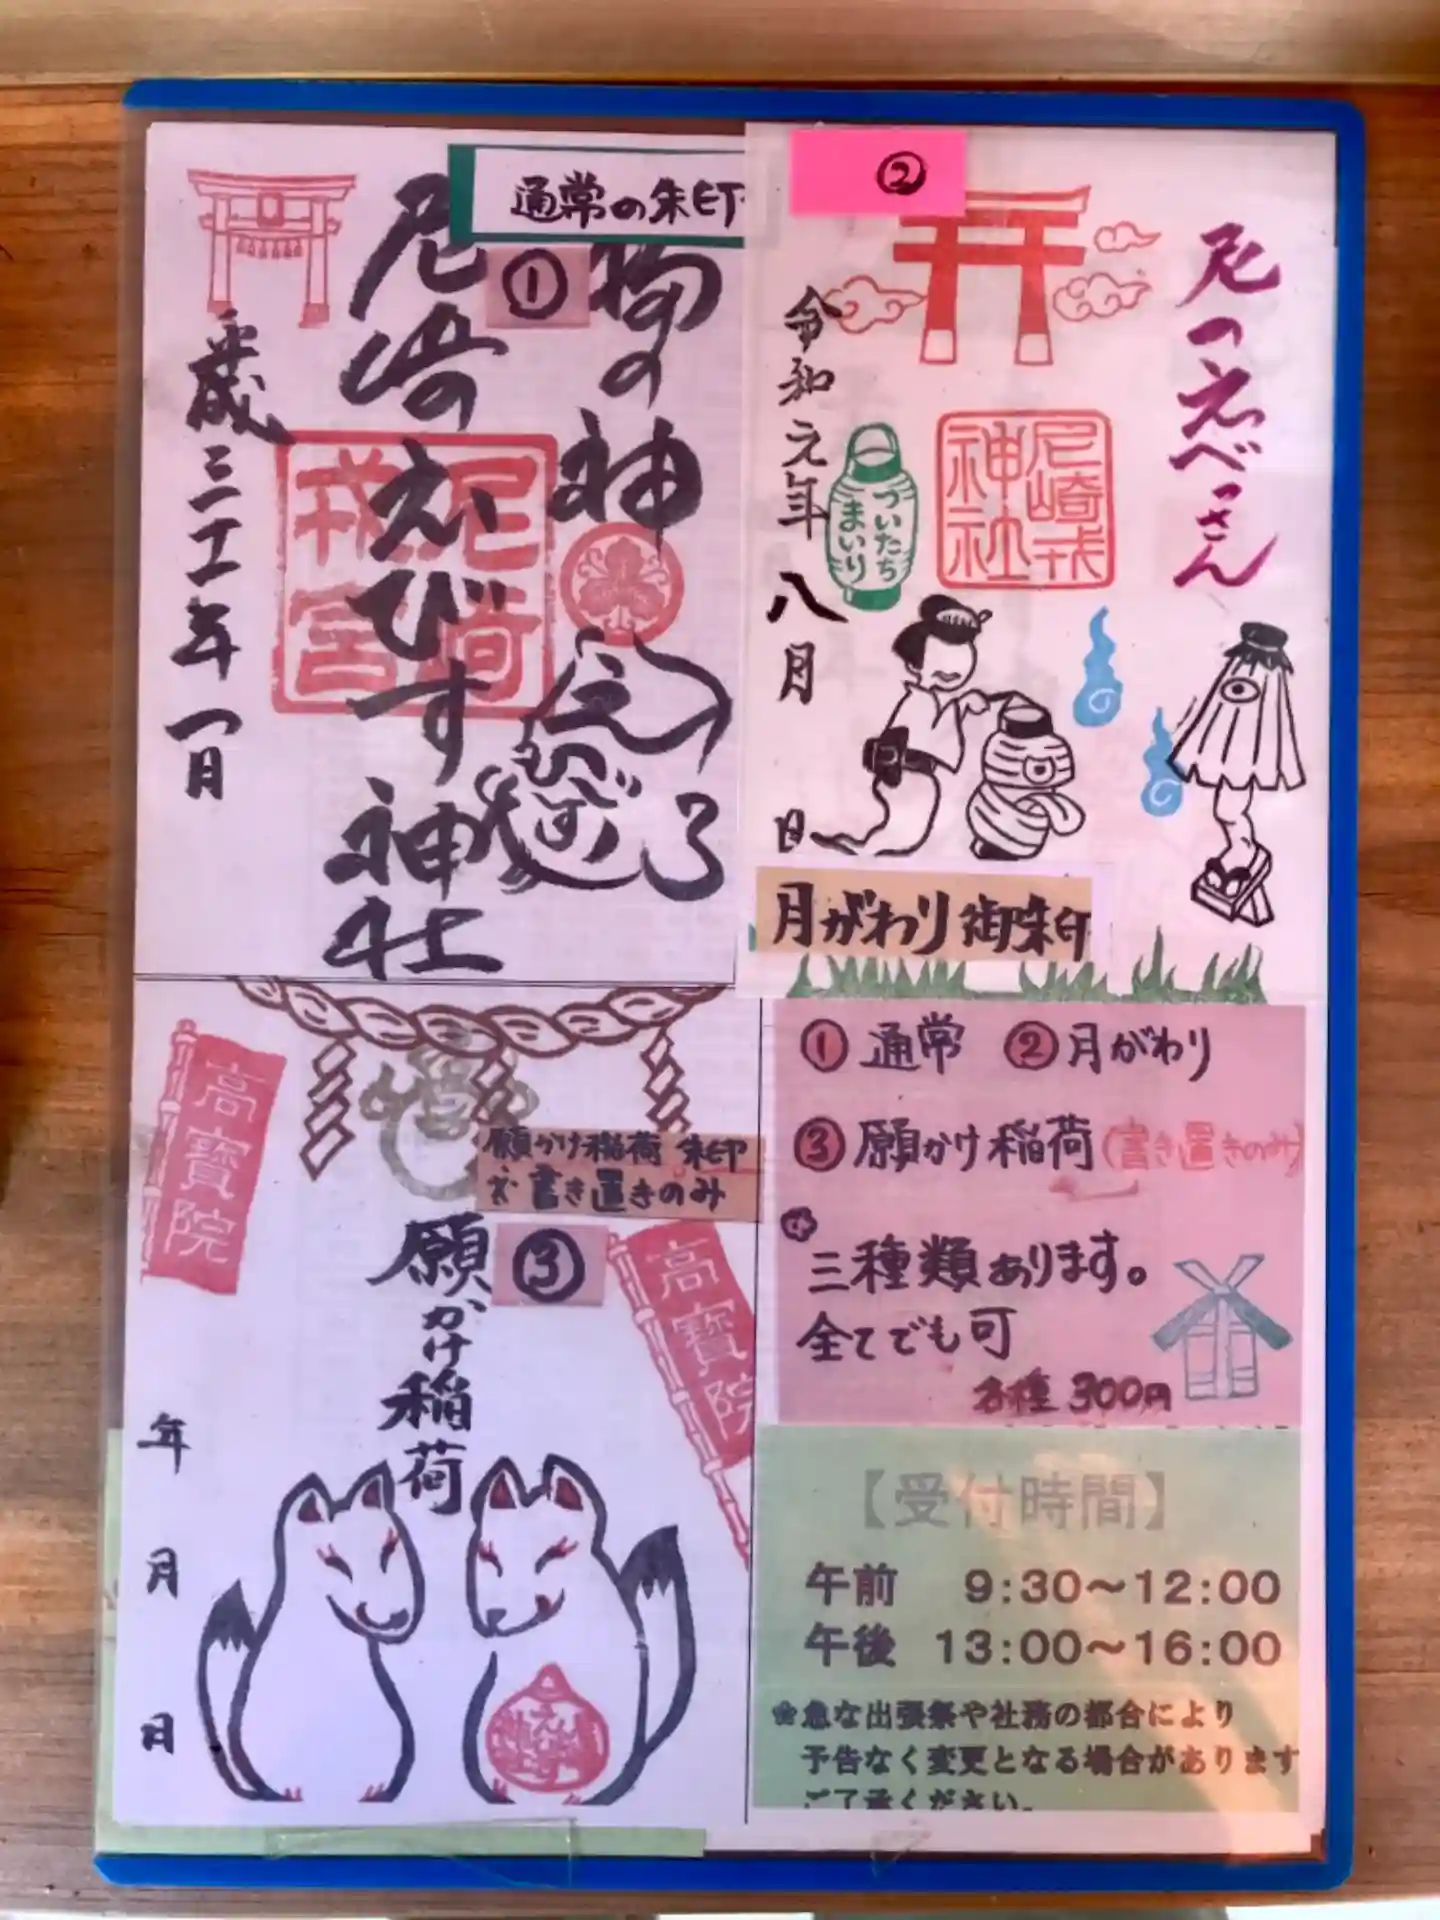 通常の朱印
①
福の神
尼崎えびす神社
平成三十一年一月
尼崎
戎宮
②
尼のえべっさん
令和元年八月
日
ついたち
まいり
尼崎戎
神社
月がわり御朱印
高寶院
願かけ稲荷 朱印
※書き置きのみ
③
願かけ稲荷
高寶院
年
月
日
①通常 ②月がわり
③願かけ稲荷(書き置きのみ)
三種類あります。
全てでも可
各種 300円
【受付時間】
午前 9:30～12:00
午後 13:00～16:00
急な出張祭や社務の都合により
予告なく変更となる場合があります
ご了承ください。